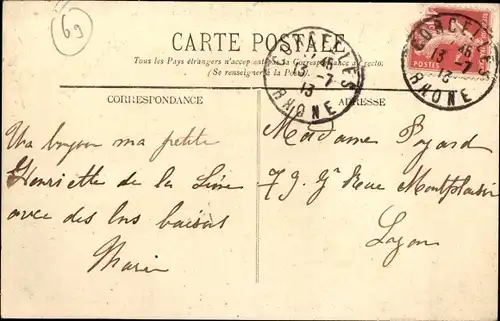 69
CARTE POSTALE
Tous les Pays étrangers n'acceptent pas la Correspondance au recto.
(Se renseigner à la Poste).
CORCELLES
15
13-7
13
RHONE
POSTES
CORCELLES
15
13-7
13
RHONE
CORRESPONDANCE
ADRESSE
Un bonjour ma petite
Henriette de la
avec des bons baisers
Marie
Madame
79 Gde Rue Montplaisir
Lyon